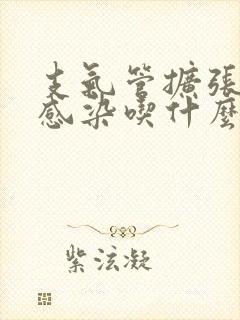 支氣管擴張
感染喫什麼
紫泫凝